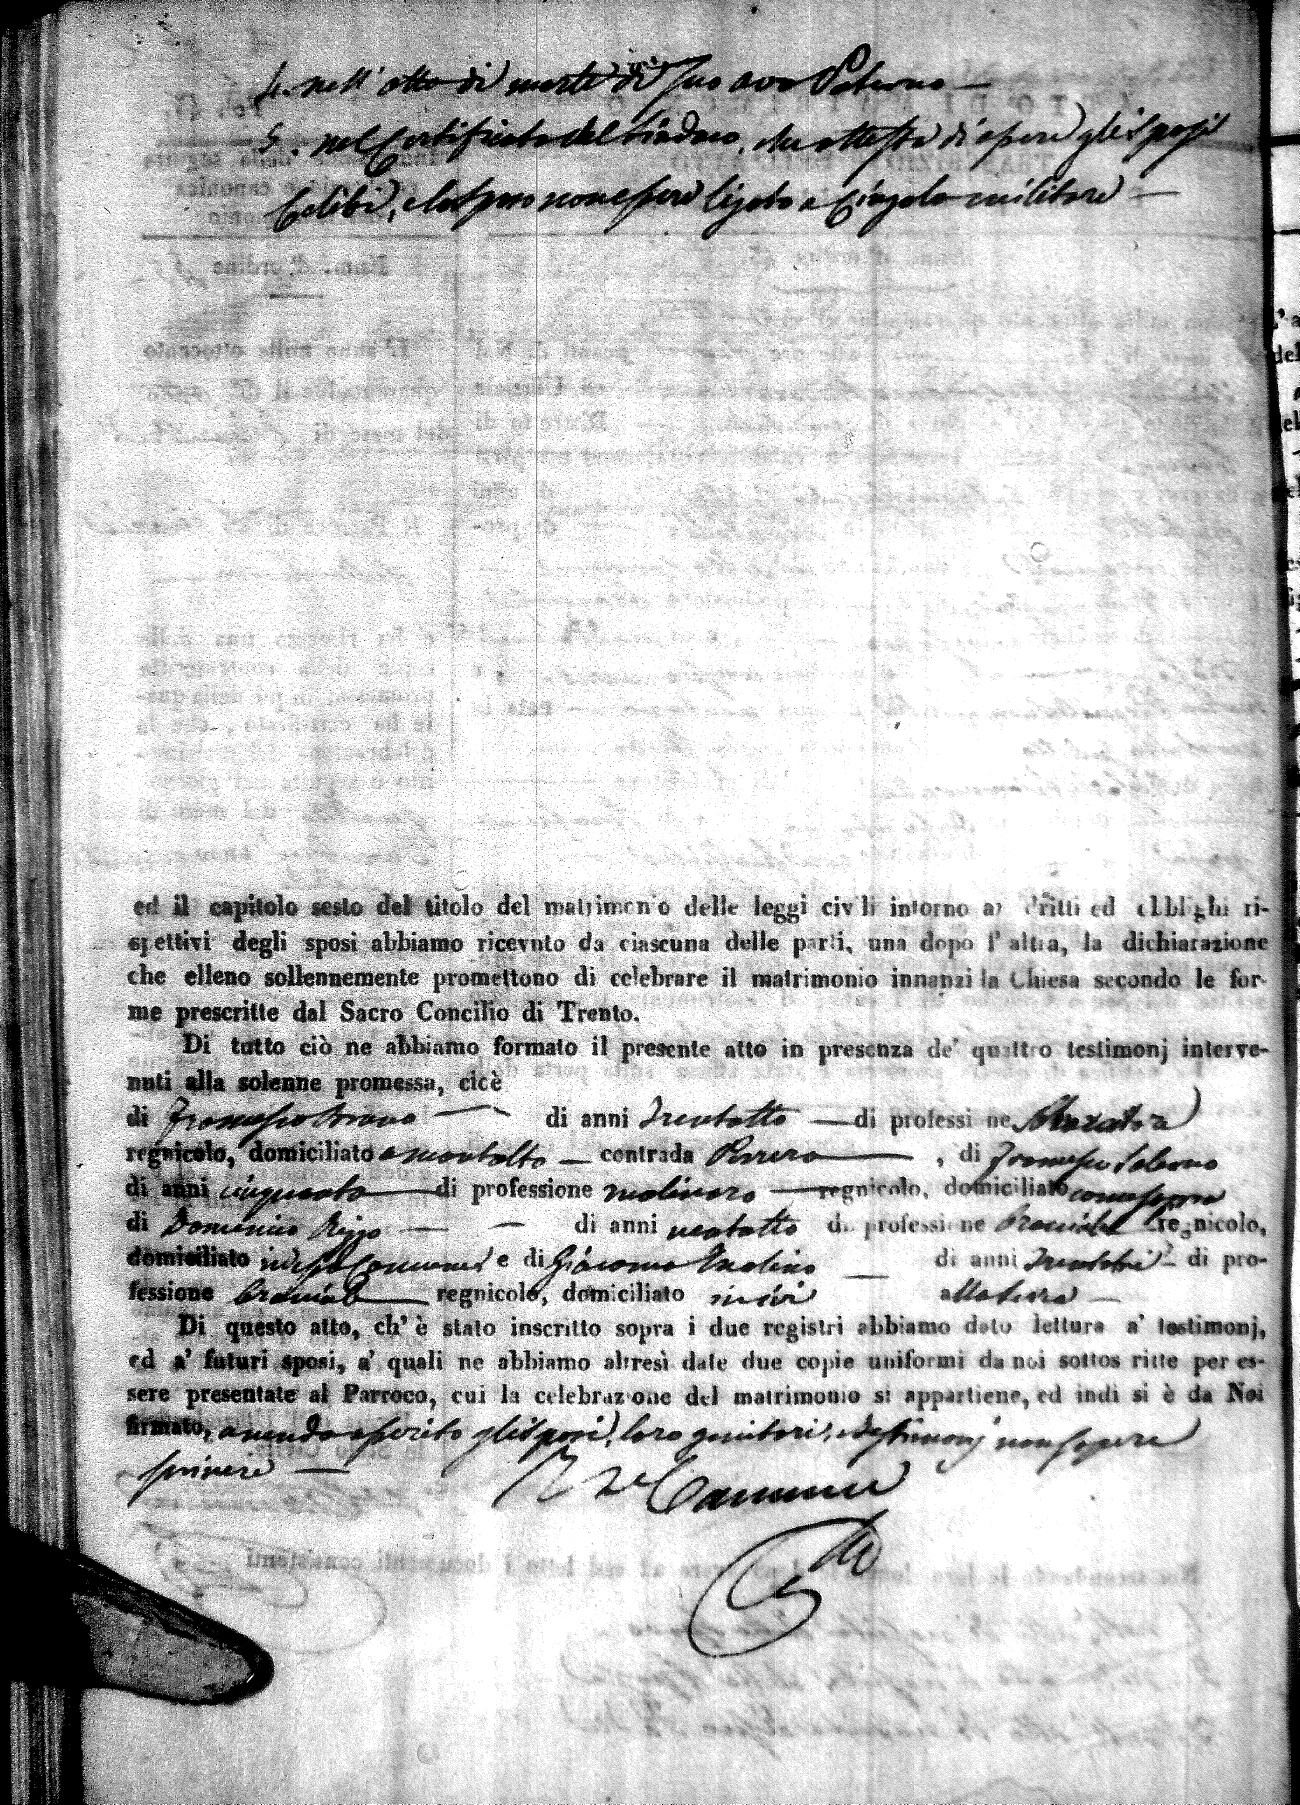 4. nell' atto di morte di suo avo Paterno —
5. nel Certificato del Sindaco, che attesta di essere gli sposi
Celibi, e lo sposo non essere ligato a Cingolo militare —
ed il capitolo sesto del titolo del matrimonio delle leggi civili intorno ai dritti ed obblighi ri-
spettivi degli sposi abbiamo ricevuto da ciascuna delle parti, una dopo l' altra, la dichiarazione
che elleno sollennemente promettono di celebrare il matrimonio innanzi la Chiesa secondo le for-
me prescritte dal Sacro Concilio di Trento.
Di tutto ciò ne abbiamo formato il presente atto in presenza de' quattro testimonj interve-
nuti alla solenne promessa, cioè
di Francesco — di anni Trentotto — di professione
regnicolo, domiciliato a Montalto — contrada — , di Francesco Salerno
di anni cinquanta — di professione molinaro — regnicolo, domiciliato come sopra
di Domenico Rizzo — di anni ventotto di professione Bracciale regnicolo,
domiciliato e di Giacomo — di anni di pro-
fessione Bracciale — regnicolo, domiciliato ivi
Di questo atto, ch' è stato inscritto sopra i due registri abbiamo dato lettura a' testimonj,
ed a' futuri sposi, a' quali ne abbiamo altresì date due copie uniformi da noi sottoscritte per es-
sere presentate al Parroco, cui la celebrazione del matrimonio si appartiene, ed indi si è da Noi
firmato, avendo asserito gli sposi, loro genitori, e testimonj non sapere
scrivere —